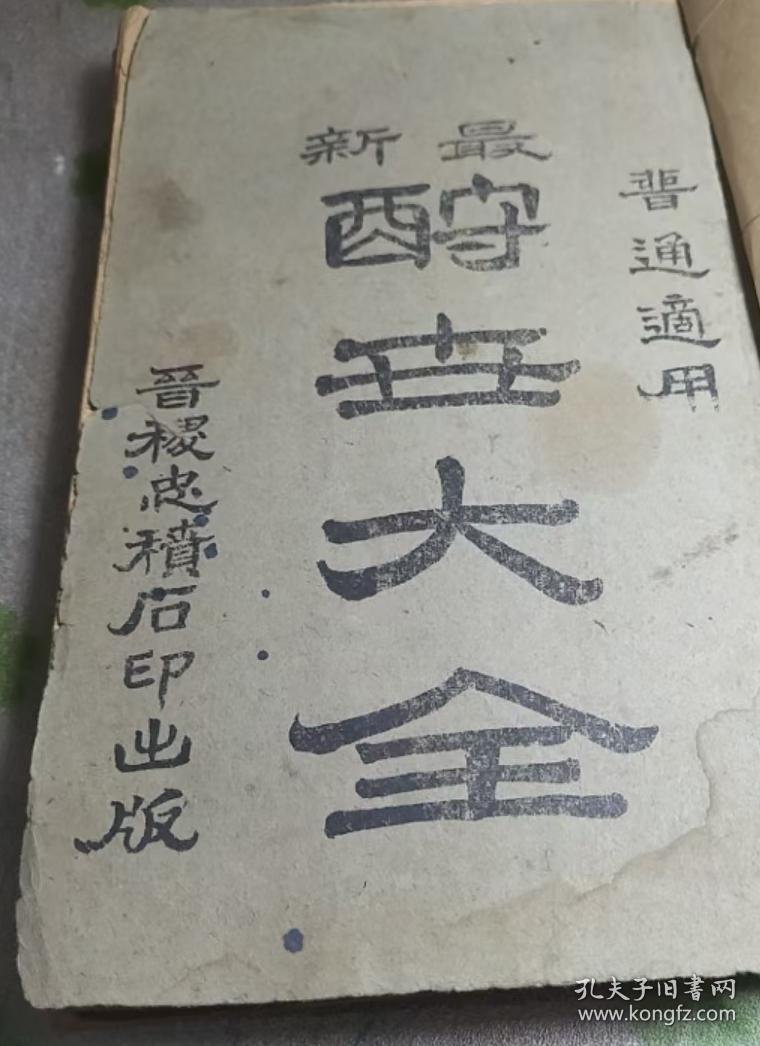 普通適用
最新
酧世大全
晉稷忠積石印出版
孔夫子旧書网
www.kongfz.com